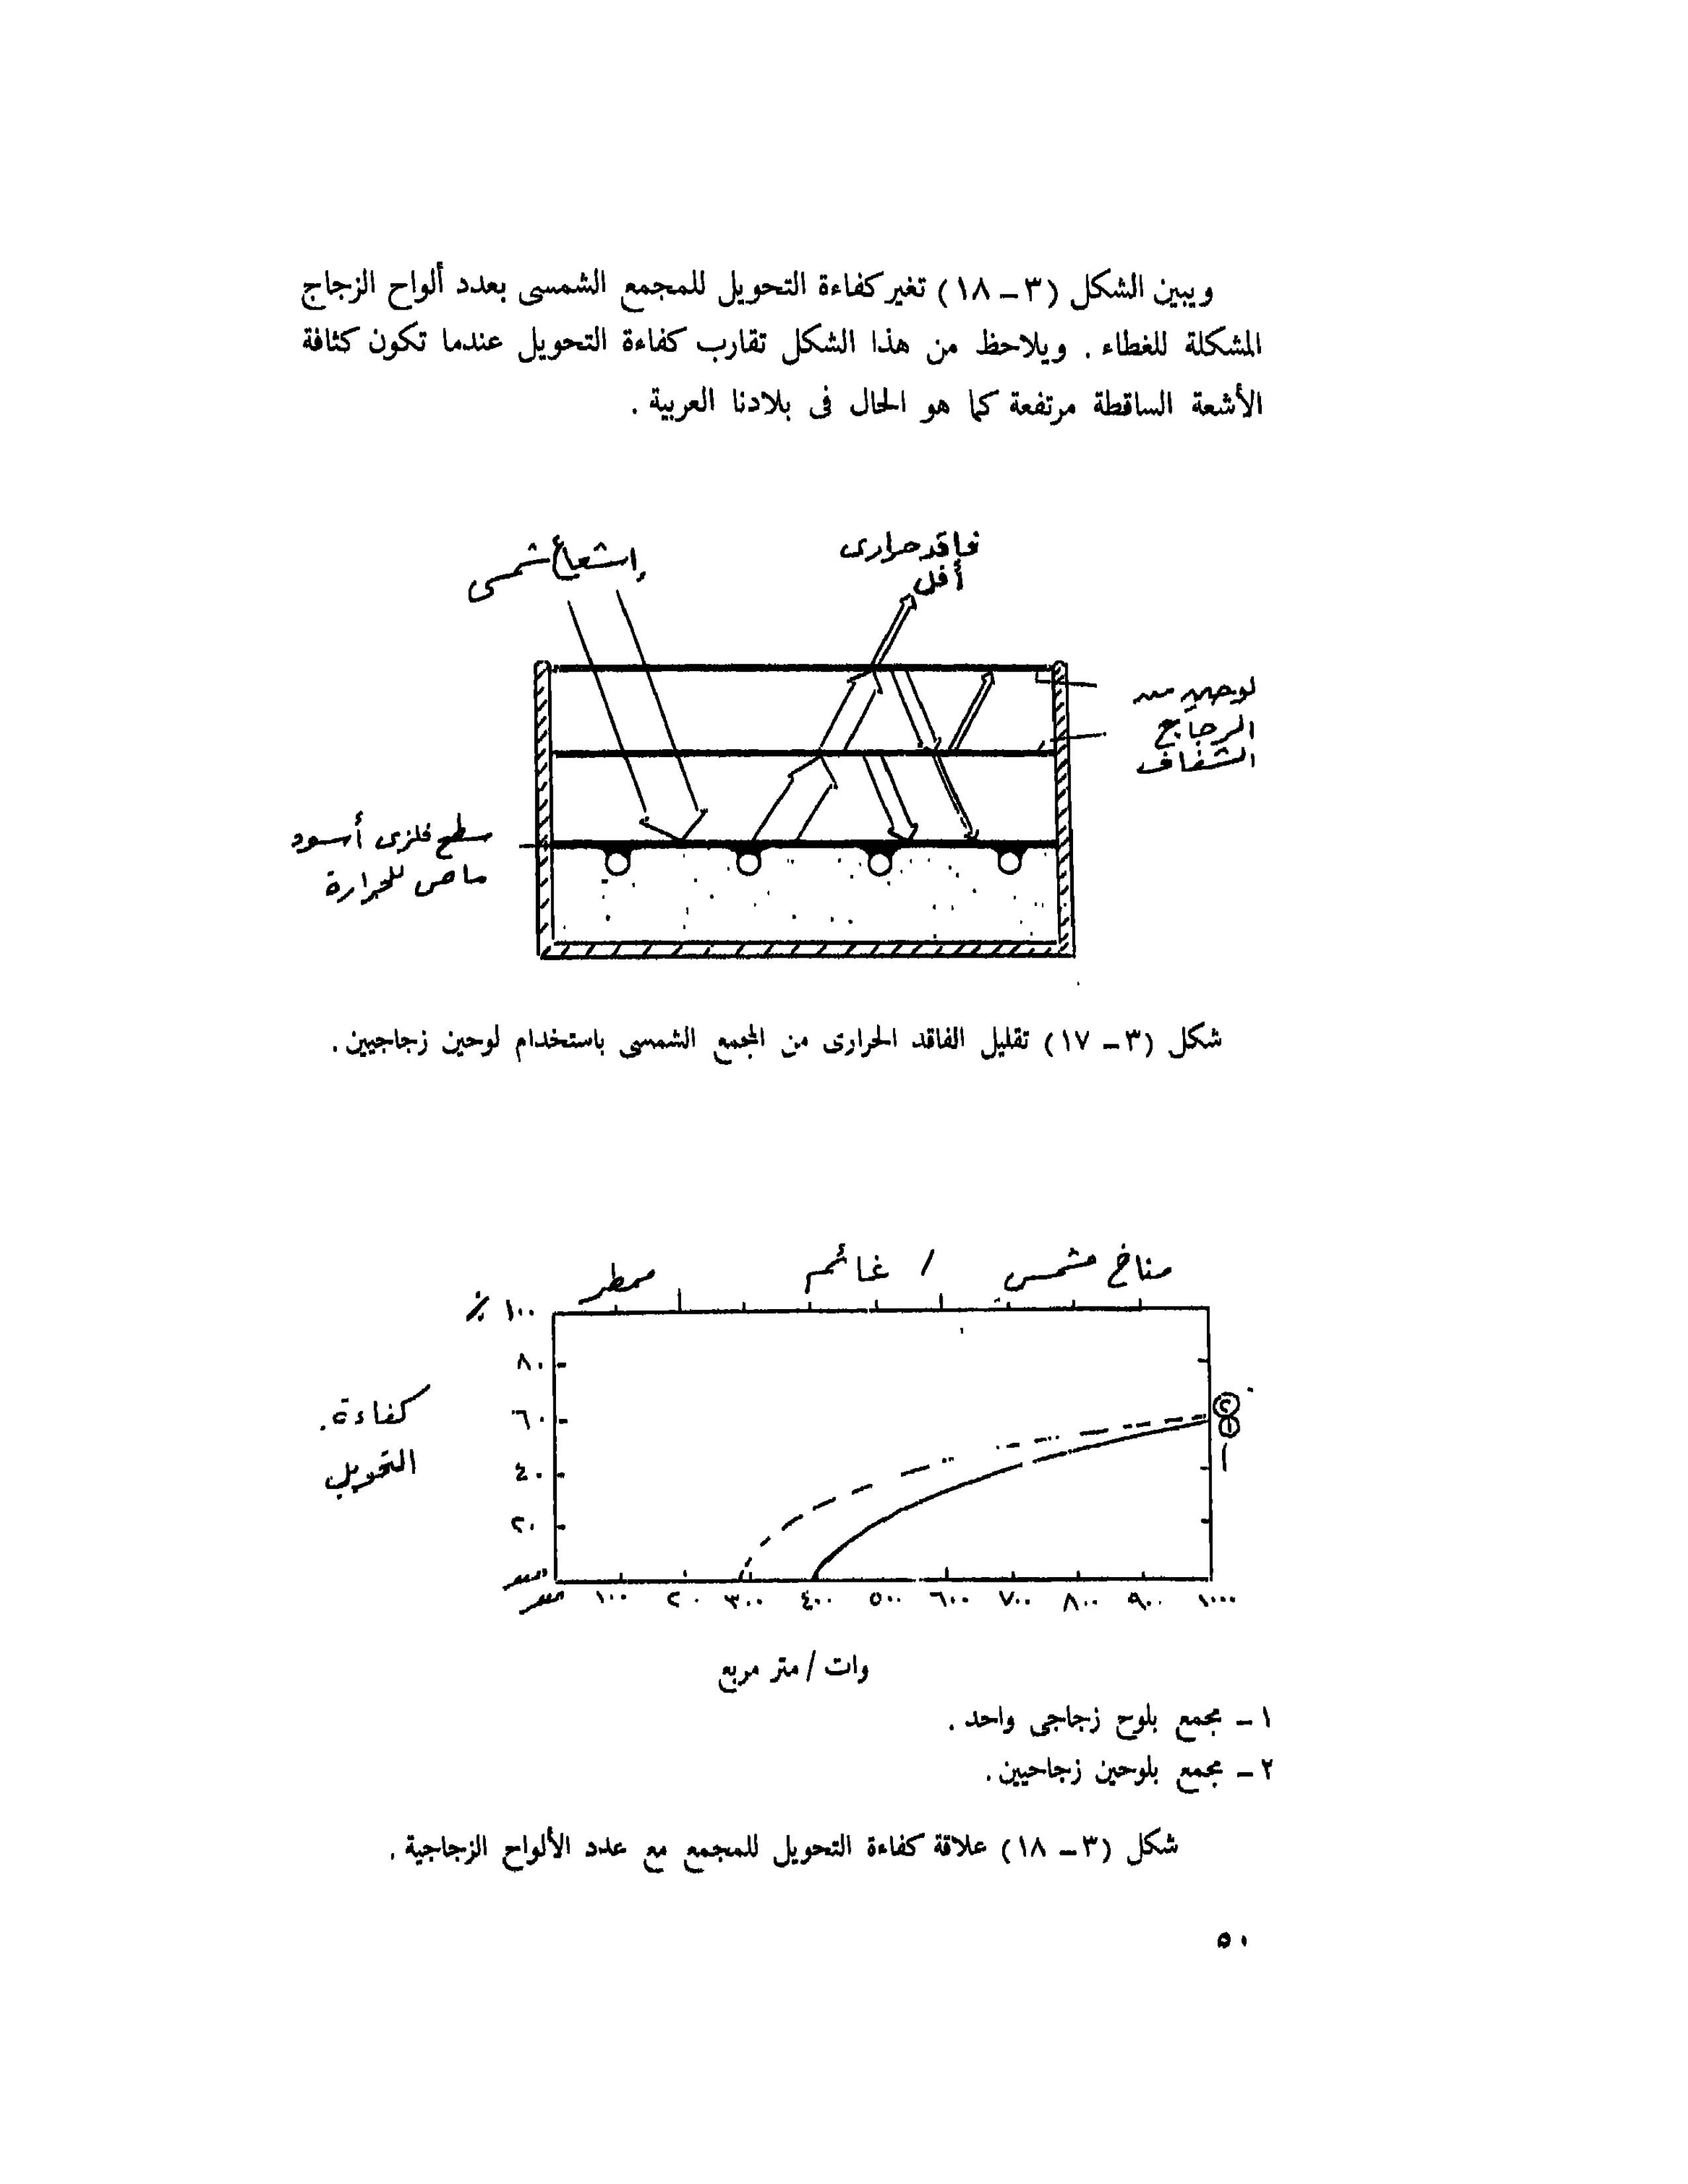 ويبين الشكل (٣ – ١٨) تغير كفاءة التحويل للمجمع الشمسى بعدد ألواح الزجاج
المشكلة للغطاء . ويلاحظ من هذا الشكل تقارب كفاءة التحويل عندما تكون كثافة
الأشعة الساقطة مرتفعة كما هو الحال فى بلادنا العربية .
إشعاع شمسى
فاقد حرارى
أقل
لوحين من
الزجاج
الشفاف
سطح فلزى أسود
ماص للحرارة
شكل (٣ – ١٧) تقليل الفاقد الحرارى من المجمع الشمسى باستخدام لوحين زجاجيين .
مناخ مشمس / غائم ممطر
١٠٠ ٪
٨٠
٦٠
٤٠
٢٠
صفر
كفاءة
التحويل
٢
١
١
صفر ١٠٠ ٢٠ ٣٠٠ ٤٠٠ ٥٠٠ ٦٠٠ ٧٠٠ ٨٠٠ ٩٠٠ ١٠٠٠
وات / متر مربع
١ – مجمع بلوح زجاجى واحد .
٢ – مجمع بلوحين زجاحيين .
شكل (٣ – ١٨) علاقة كفاءة التحويل للمجمع مع عدد الألواح الزجاجية .
٥٠